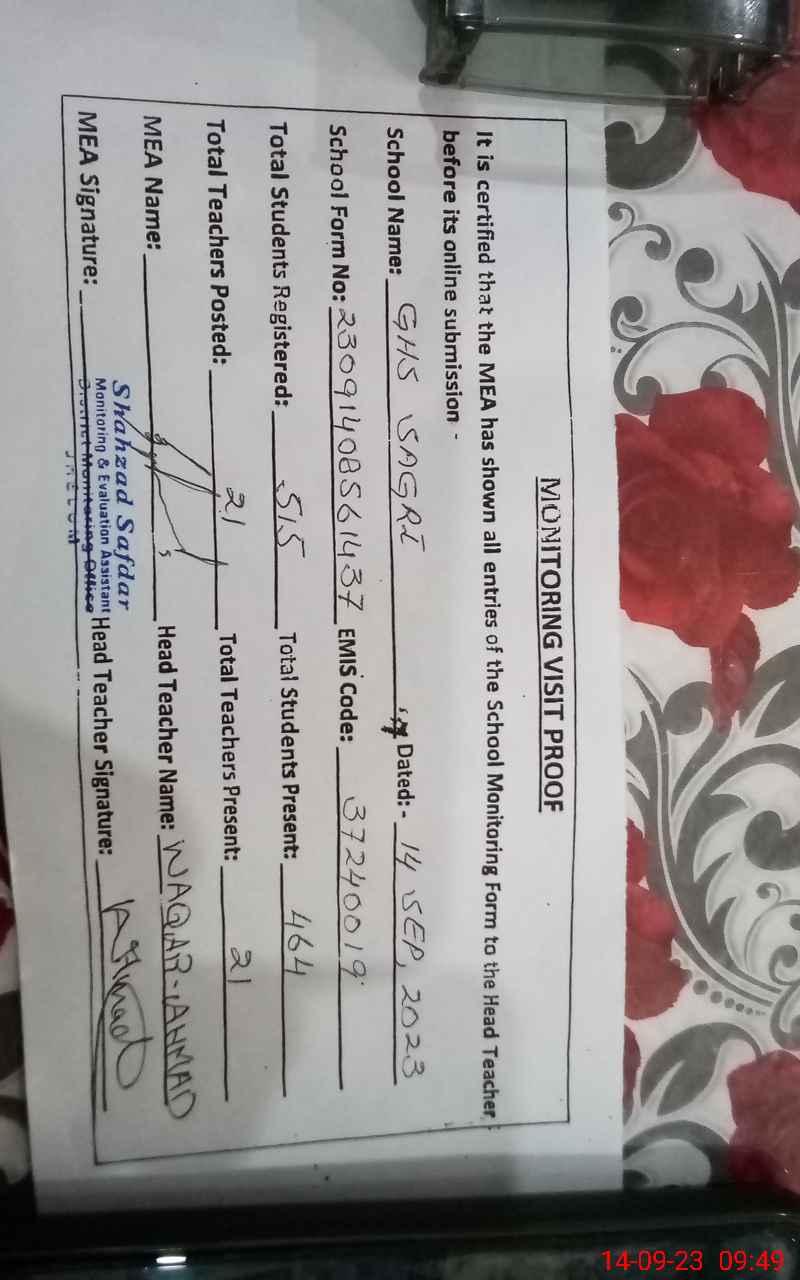 MONITORING VISIT PROOF
It is certified that the MEA has shown all entries of the School Monitoring Form to the Head Teacher
before its online submission -
School Name: GHS SAGRI Dated:- 14 SEP, 2023
School Form No: 23091408561437 EMIS Code: 37240019
Total Students Registered: 515 Total Students Present: 464
Total Teachers Posted: 21 Total Teachers Present: 21
MEA Name: Head Teacher Name: WAQAR-AHMAD
Shahzad Safdar
Monitoring & Evaluation Assistant
District Monitoring Office
JHELUM
MEA Signature: Head Teacher Signature: Ahmad
14-09-23 09:49